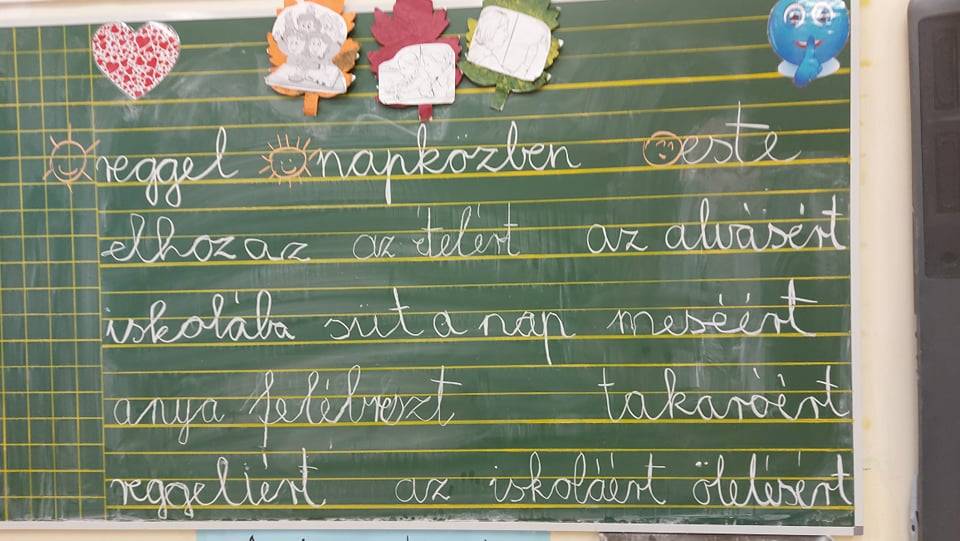 reggel napközben este
elhoz az az ételért az alvásért
iskolába süt a nap meséért
anya felébreszt takaróért
reggeliért az iskoláért ölelésért